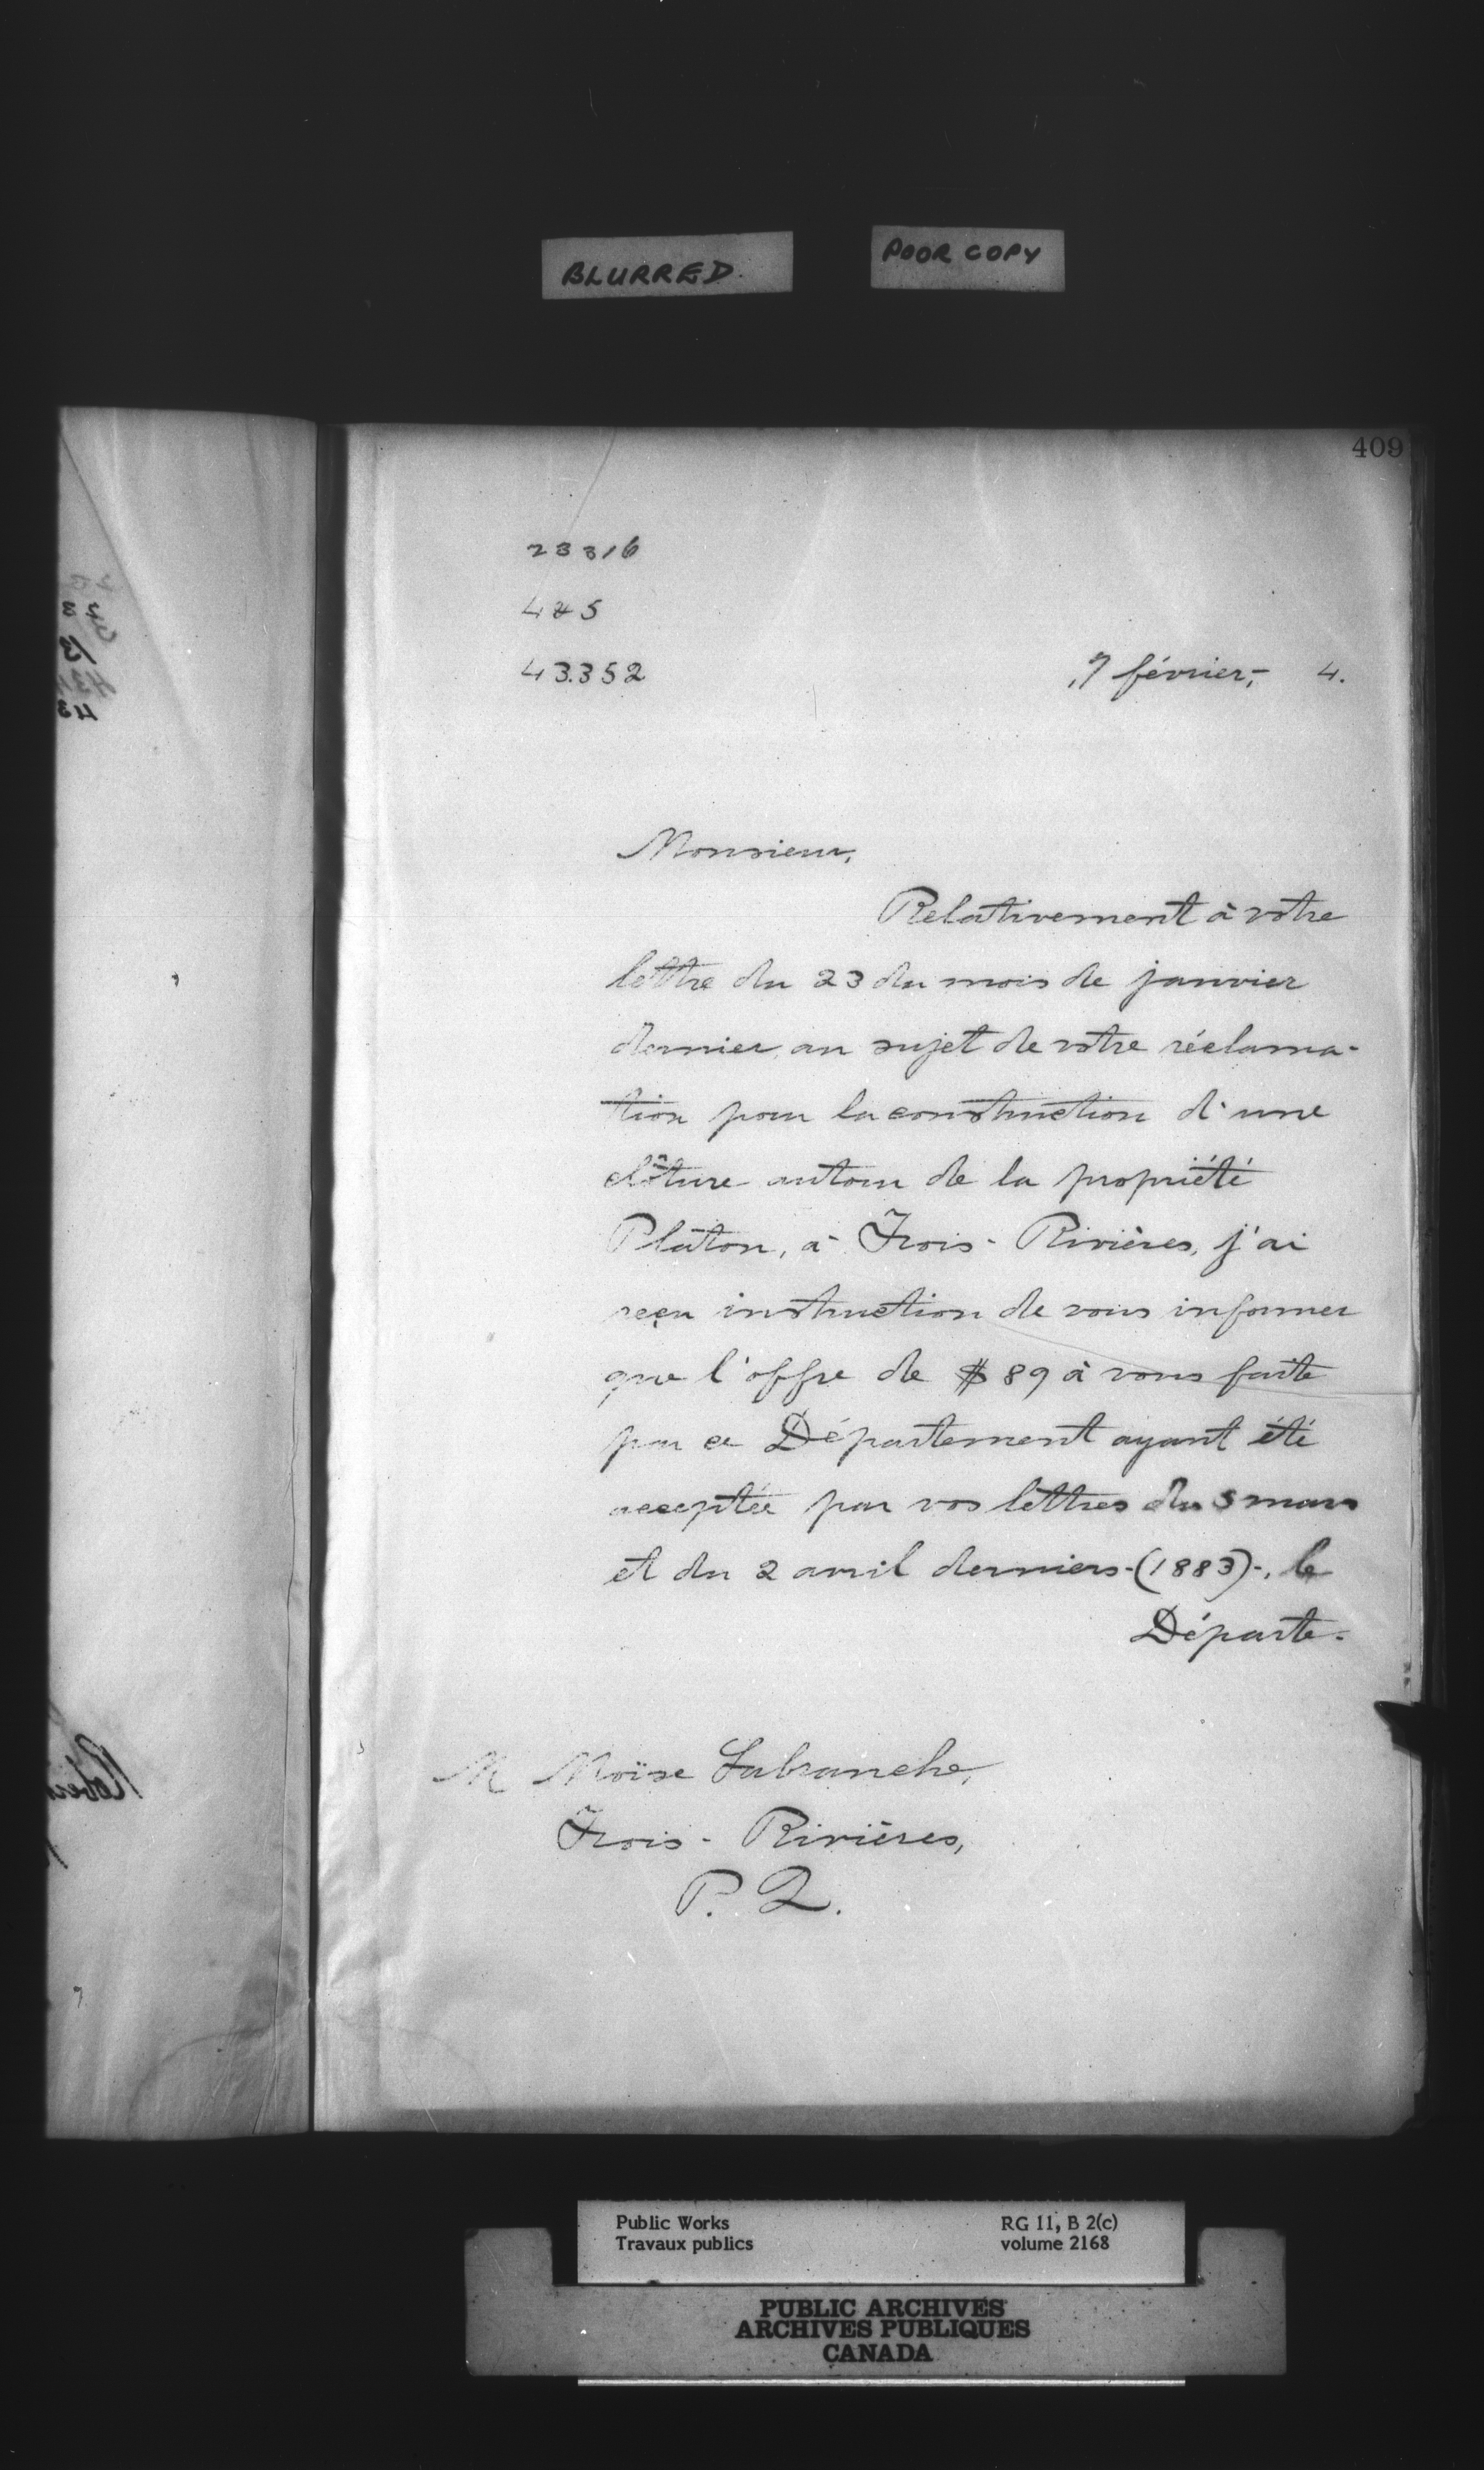 BLURRED.
POOR COPY
409
23316
485
43.352
7 février,- 4.
Monsieur,
Relativement à votre
lettre du 23 du mois de janvier
dernier, au sujet de votre réclama-
tion pour la construction d'une
clôture autour de la propriété
Platon, à Trois-Rivières, j'ai
reçu instruction de vous informer
que l'offre de $89 à vous faite
par ce Département ayant été
acceptée par vos lettres du 5 mars
et du 2 avril derniers-(1883)-, le
Départe-
M Moïse Labranche,
Trois-Rivières,
P. Q.
Public Works
Travaux publics
RG 11, B 2(c)
volume 2168
PUBLIC ARCHIVES
ARCHIVES PUBLIQUES
CANADA